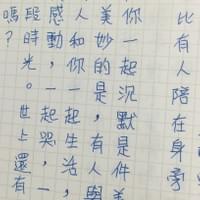 比有人陪在身旁
你一起沉默是件美
美妙的是，有人與
人和你一起生活，
感動，一起哭，一
段時光。世上還有
嗎？